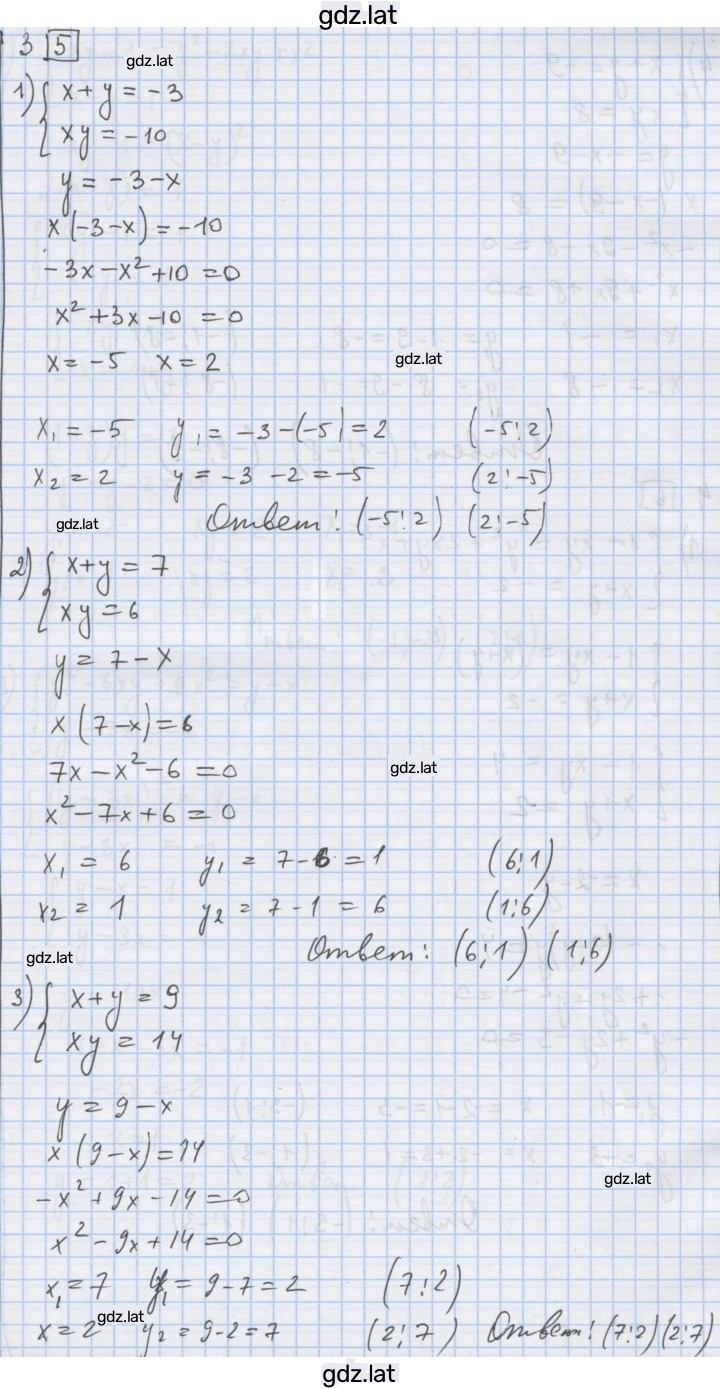 gdz.lat
3 5
gdz.lat
1) { x + y = -3
xy = -10
y = -3 - x
x(-3-x) = -10
-3x - x² + 10 = 0
x² + 3x - 10 = 0
x = -5 x = 2
gdz.lat
x₁ = -5 y₁ = -3-(-5) = 2 (-5; 2)
x₂ = 2 y = -3 -2 = -5 (2; -5)
gdz.lat
Ответ: (-5; 2) (2; -5)
2) { x+y = 7
xy = 6
y = 7 - x
x(7-x) = 6
7x - x² - 6 = 0
gdz.lat
x² - 7x + 6 = 0
x₁ = 6 y₁ = 7-6 = 1 (6; 1)
x₂ = 1 y₂ = 7 - 1 = 6 (1; 6)
gdz.lat
Ответ: (6; 1) (1; 6)
3) { x + y = 9
xy = 14
y = 9 - x
x(9-x) = 14
gdz.lat
-x² + 9x - 14 = 0
x² - 9x + 14 = 0
x₁ = 7 y₁ = 9 - 7 = 2 (7; 2)
gdz.lat
x = 2 y₂ = 9 - 2 = 7 (2; 7) Ответ: (7; 2) (2; 7)
gdz.lat